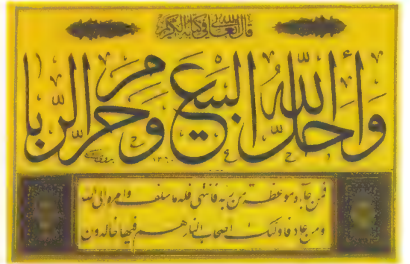 قال الله تعالى في كتابه الكريم
وأحل الله البيع وحرم الربا
فمن جاءه موعظة من ربه فانتهى فله ما سلف وامره الى الله
ومن عاد فاولئك اصحاب النار هم فيها خالدون